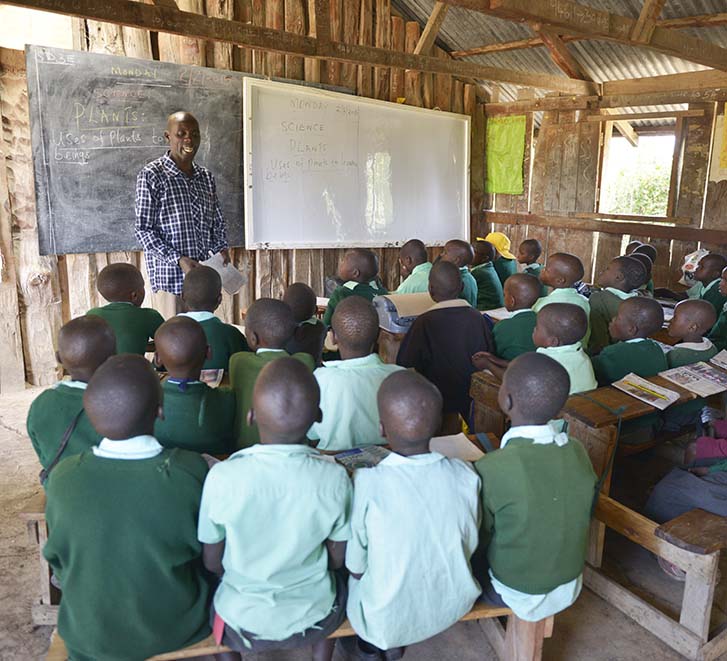 STD 3E
MONDAY
SCIENCE
PLANTS:
Uses of Plants to
beings
MONDAY
SCIENCE
PLANTS
Uses of Plants to
beings